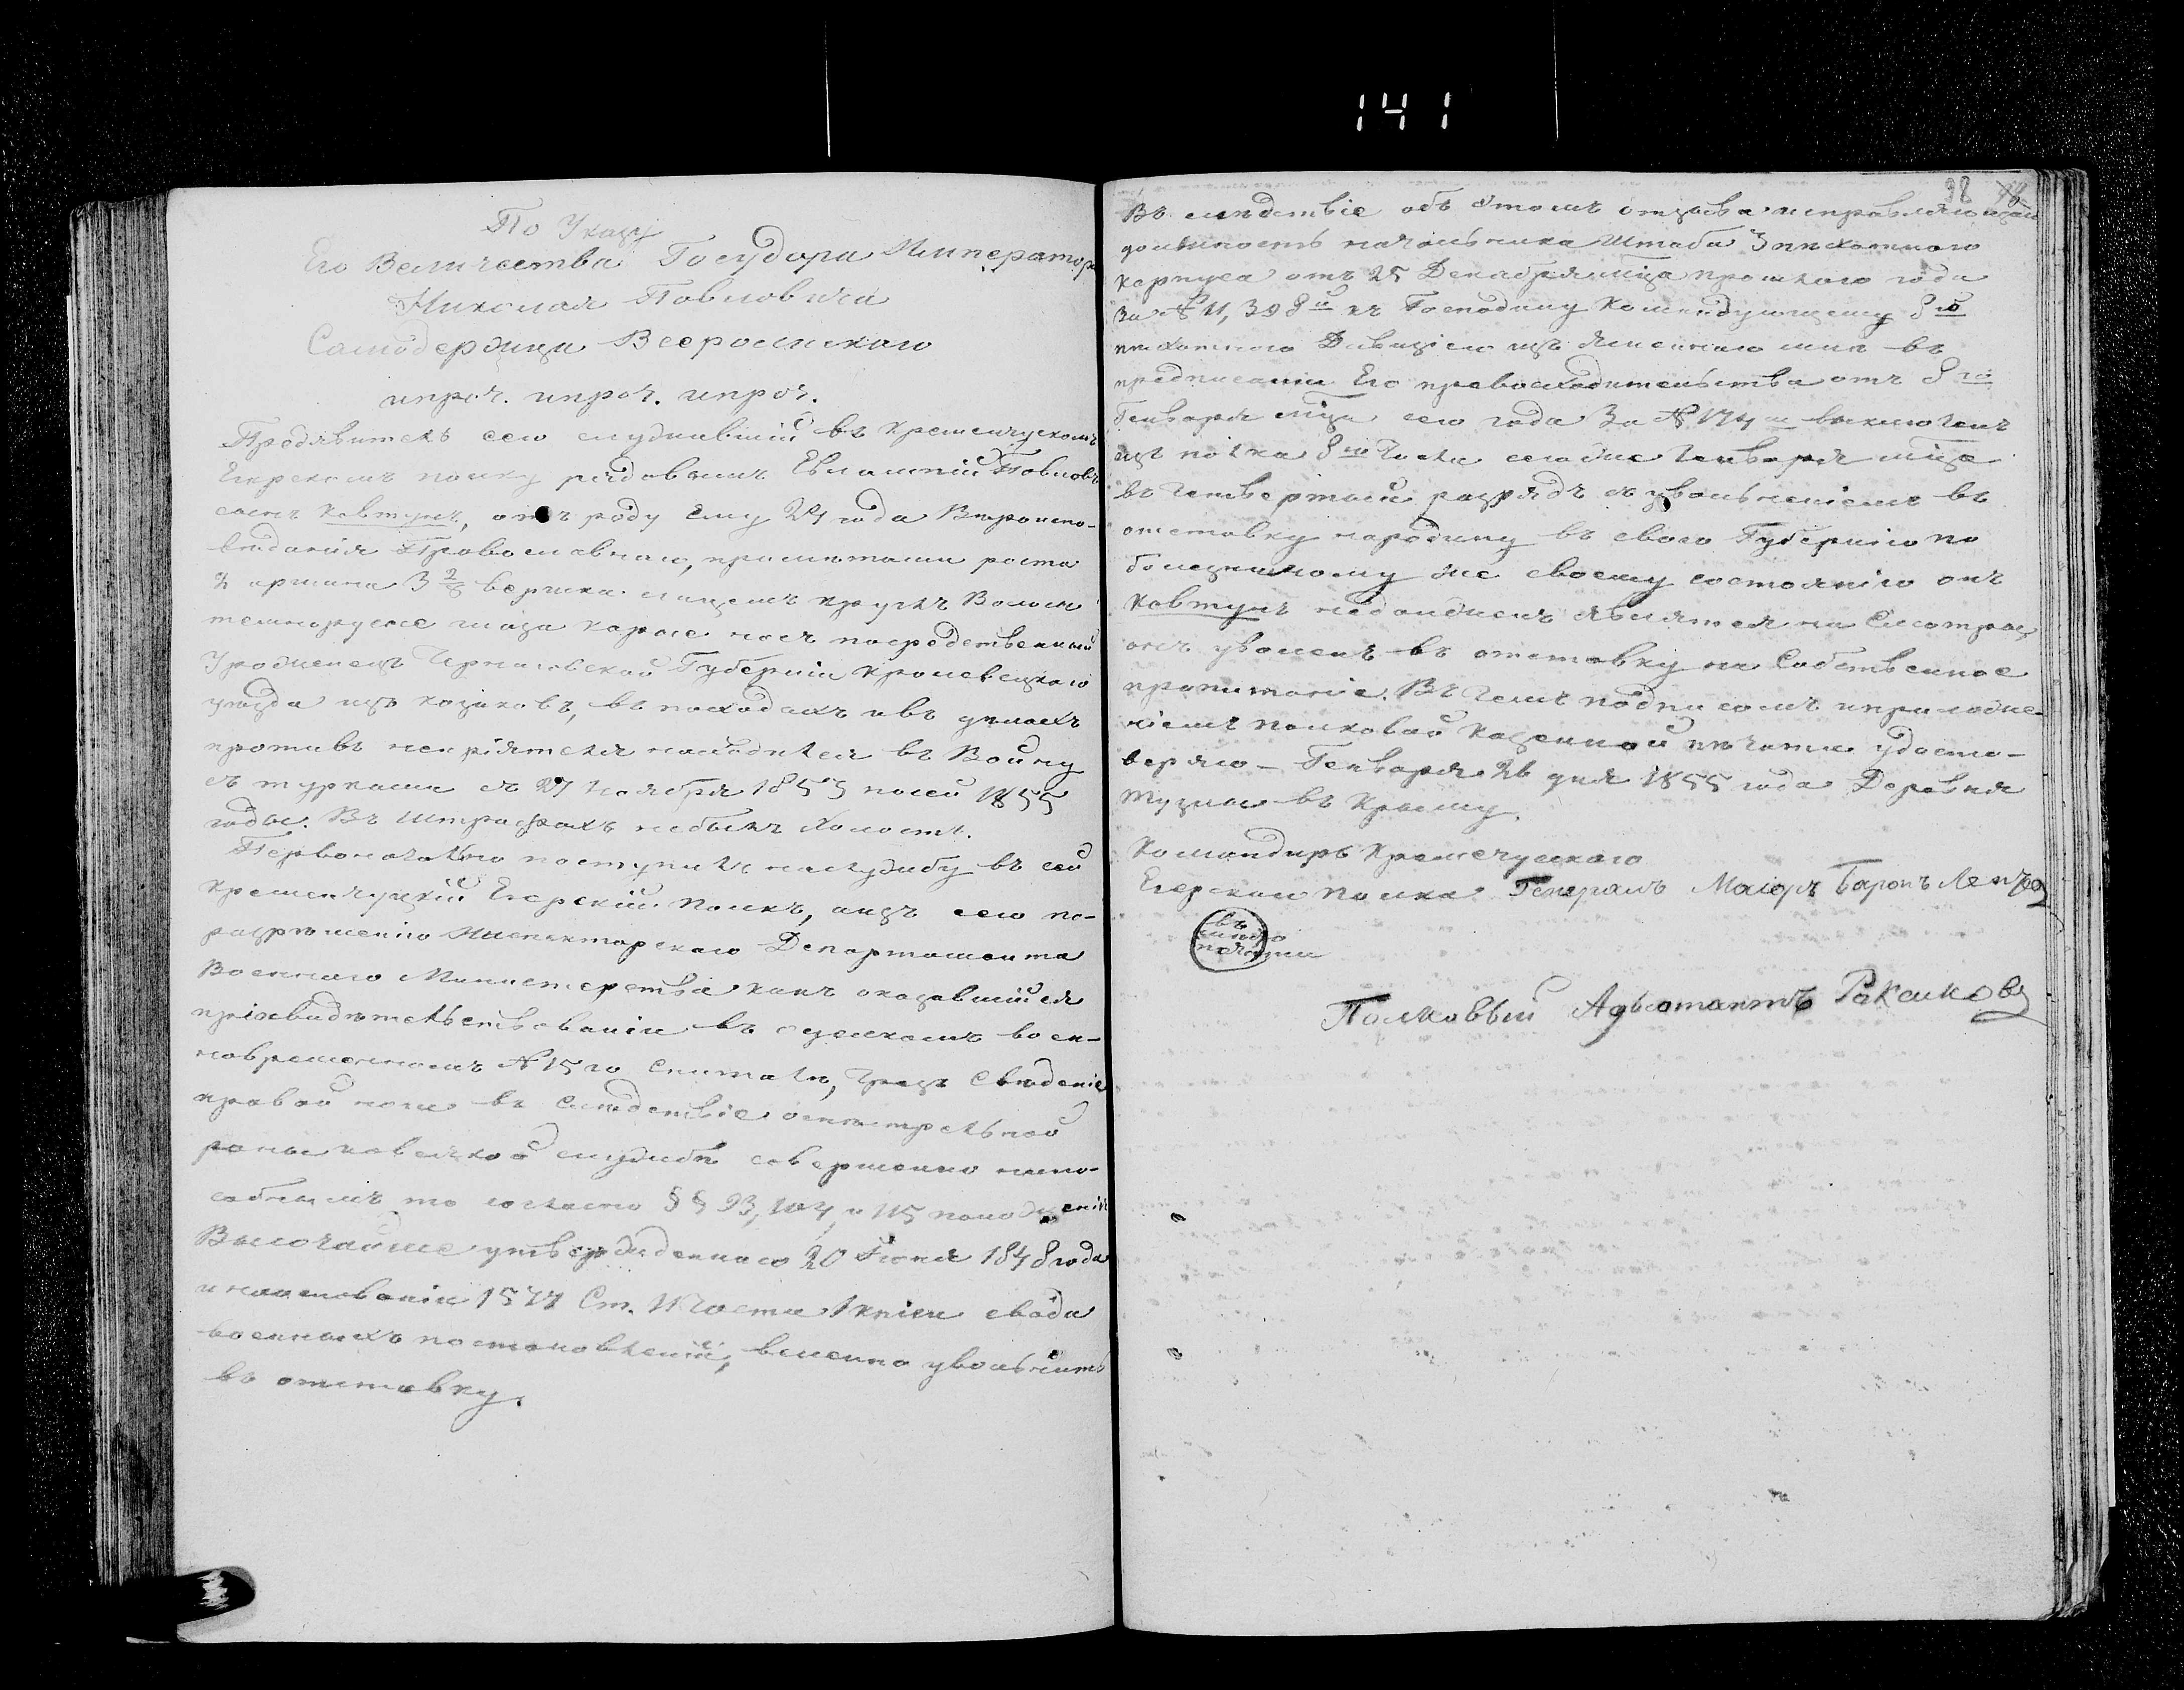 141
По Указу
Его Величества Государа Императора
Николая Павловича
Самодержца Всероссийскаго
ипроч. ипроч. ипроч.
Предявитель сего служившій въ Кременчугскомъ
Егерскомъ полку рядовымъ Евлампій Павловъ
сынъ Ковтунъ, отъ роду Ему 24 года Вероиспо-
веданія Православнаго, приметами роста
2 аршина 3 2/8 вершка. лицемъ круглъ Волосы
темнорусые глаза каріе носъ посредственный
Уроженецъ Черниговской Губерніи Кролевецкаго
уезда изъ козаковъ, въ походахъ ивъ делахъ
противъ непріятеля находился въ Войну
съ турками съ 27 Ноября 1853 посей 1855
годы. Въ штрафахъ небылъ Холостъ.
Первоначально поступилъ наслужбу въ сей
Кременчугкій Егерскій Полкъ, аизъ сего по-
разрешенію Инспекторскаго Департамента
Военнаго Министерства какъ оказавшійся
присвидетельствованіи въ одескомъ воен-
новременномъ № 15 го Спитале, Чрезъ Сведеніе
правой ноги въ Следствіе огнестрельной
раны ковсякой службе совершенно неспо-
собнымъ то согласно §§ 93, 104, и 115 положенія
Высочайше утвержденнаго 20 Іюня 1848 года
и наоснованіи 1577 Ст. II Части I книги свода
военныхъ постановленій, велено уволнить
въ отставку.
98
Въ следствіе объ этомъ отзыва исправляющаго
должность начальника Штаба 3 пехотнаго
корпуса отъ 25 Декабря мца прошлаго года
За № 11,398 й къ Господину Командующему 8 ю
пехотною Дивизіею изъясненнаго мне въ
предписаніи Его превосходительства отъ 8 го
Генваря мца сего года За № 174 м выключенъ
изъ полка 8 го Числа сегоже Генваря мца
въ Четвертый разрядъ съ увольненіемъ въ
отставку народину въ свою Губернію по
болезненному же своему состоянію онъ
Ковтунъ недолженъ являтся на Смотръ
онъ уволенъ въ отставку на Собственное
пропитаніе. Въ Чемъ подписомъ иприложе-
ніемъ полковой Казенной печати удосто-
веряю — Генваря 26 дня 1855 года Деревня
Тузлы въ Крыму.
Командиръ Кременчугскаго
Егерскаго Полка Генералъ Маіоръ Баронъ
въ
место
печати
Полковый Адъютантъ